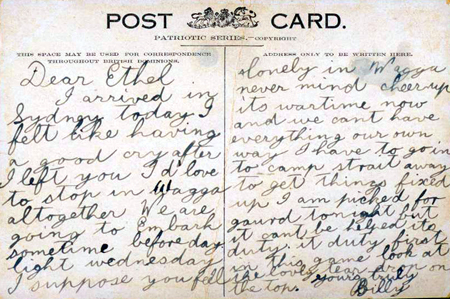 POST CARD.
PATRIOTIC SERIES.—COPYRIGHT
THIS SPACE MAY BE USED FOR CORRESPONDENCE
THROUGHOUT BRITISH DOMINIONS.
Dear Ethel
I arrived in
Sydney today. I
felt like having
a good cry after
I left you I'd love
to stop in Wagga
altogether We are
going to Embark
sometime before day
light wednesday
I suppose you fell
ADDRESS ONLY TO BE WRITTEN HERE.
lonely in Wagga
never mind cheer up
its wartime now
and we cant have
everything our own
way I have to go in
to camp strait away
to get things fixed
up I am picked for
gaurd tonight but
it cant be helped its
duty. it duty first
in this game look at
the loves tear drop on
the top. yours truly
Billy